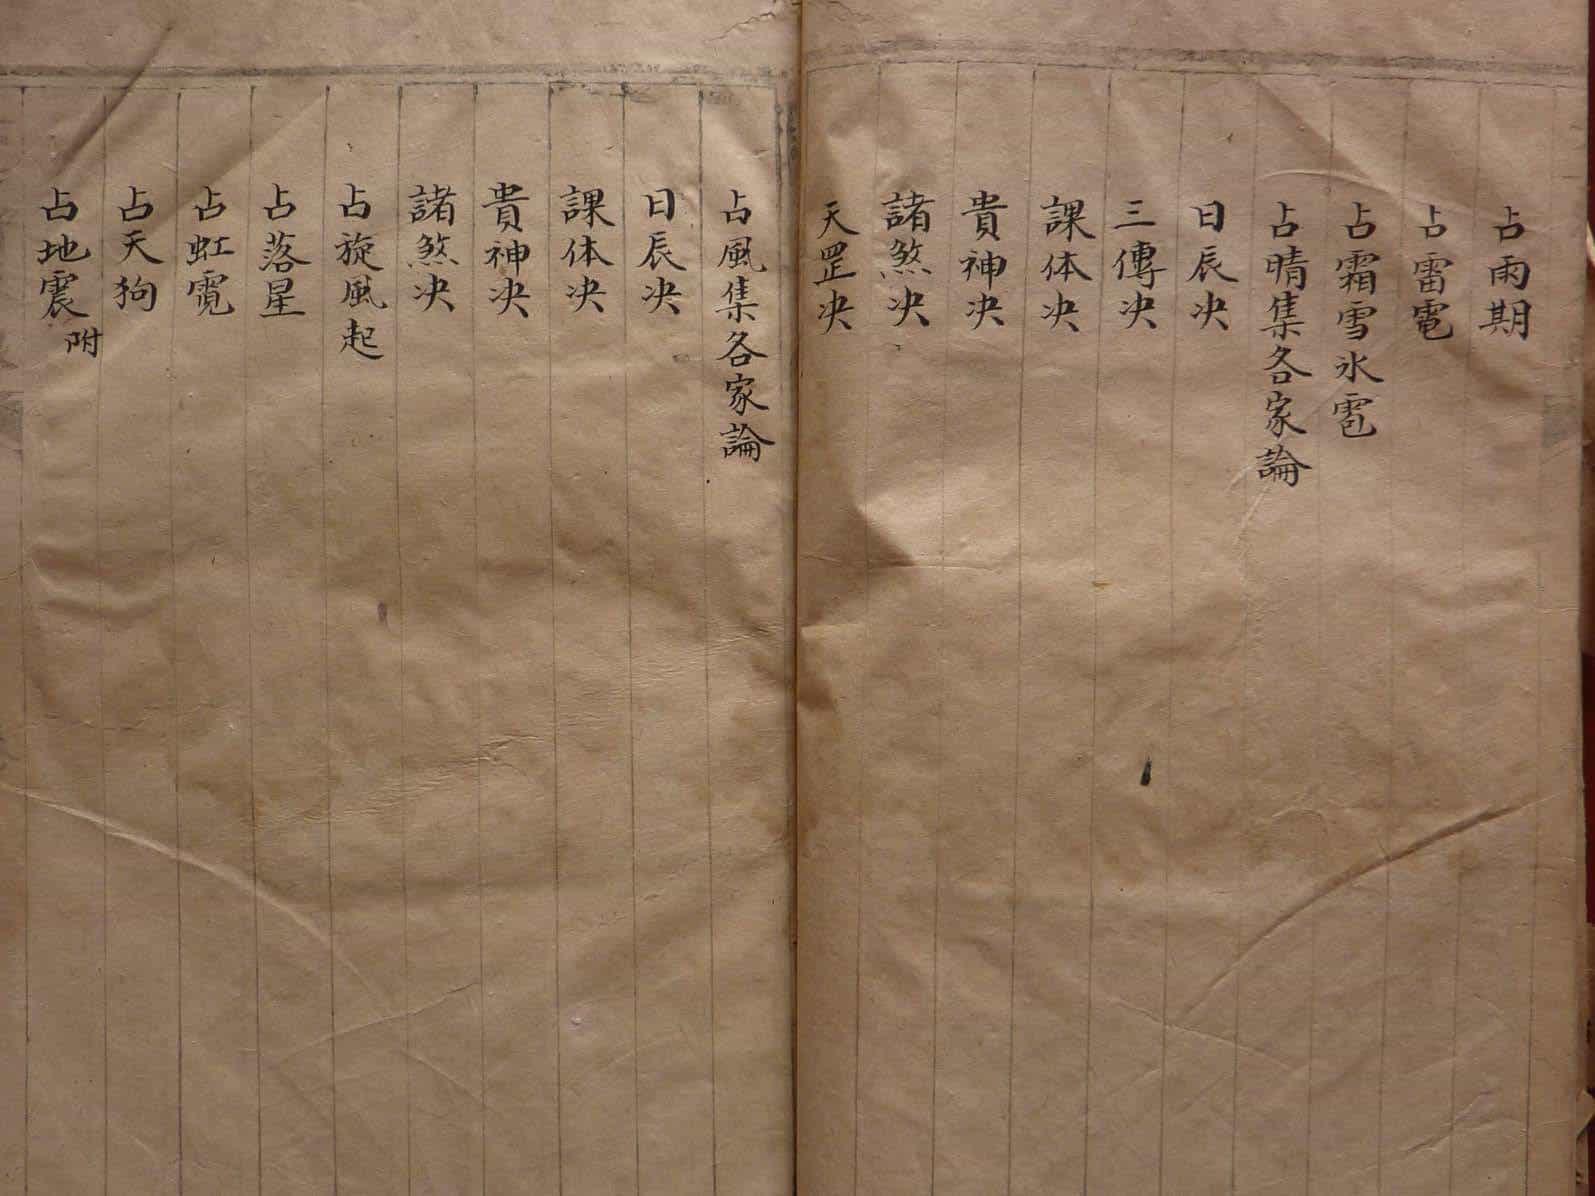 占雨期
占雷電
占霜雪氷雹
占晴集各家論
日辰决
三傳决
課体决
貴神决
諸煞决
天罡决
占風集各家論
日辰决
課体决
貴神决
諸煞决
占旋風起
占落星
占虹霓
占天狗
占地震附